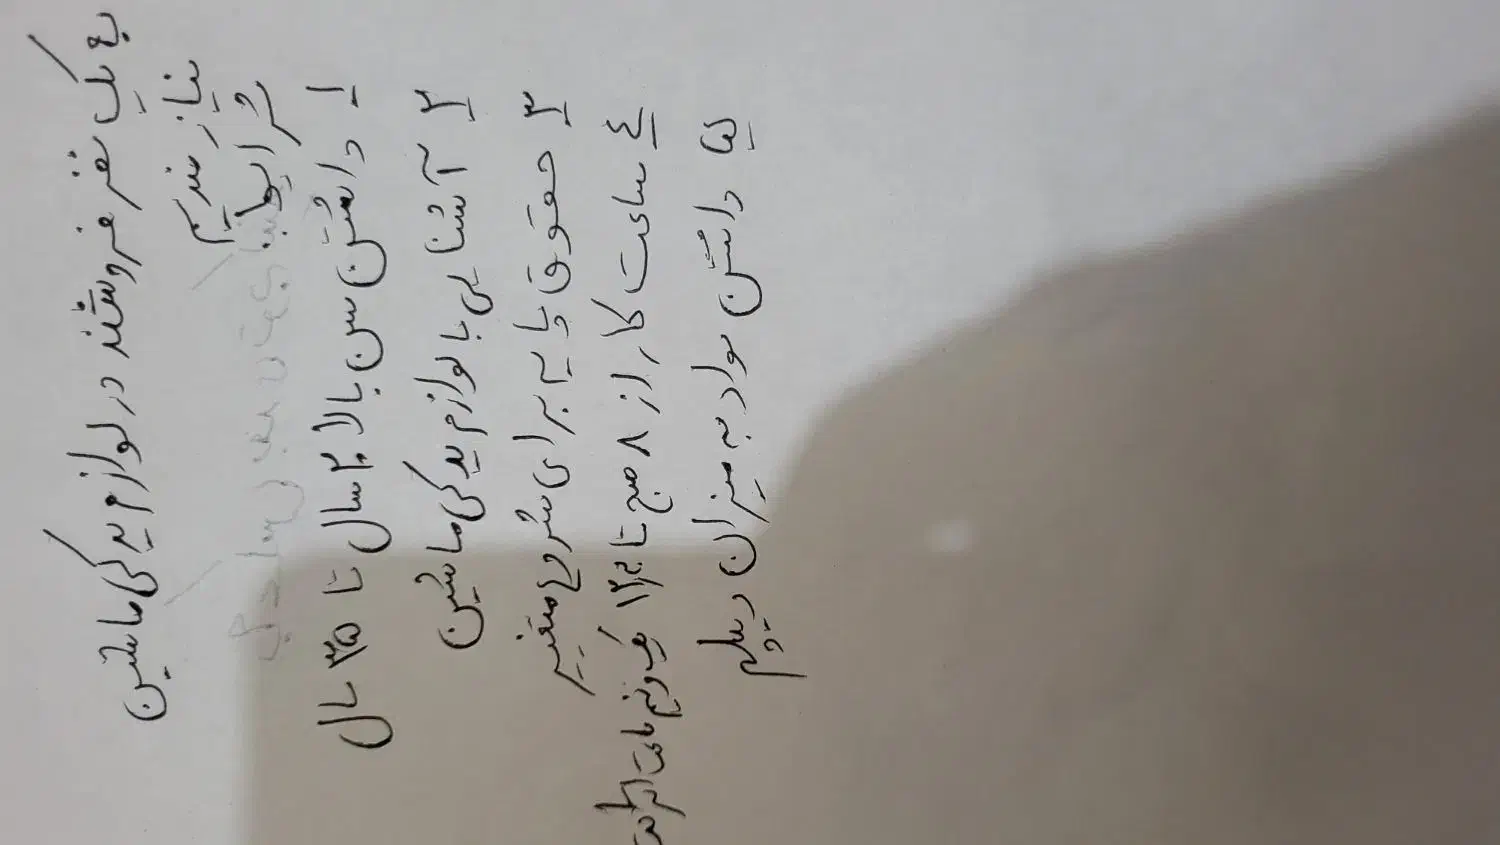 به یک نفر فروشنده در لوازم یدکی ماشین
نیازمندیم
شرایط
۱ داشتن سن بالا ۲۰ سال تا ۳۵ سال
۲ آشنایی با لوازم یدکی ماشین
۳ حقوق پایه برای شروع متغییر
۴ ساعت کار از ۸ صبح تا یک و نیم ساعت استراحت
۵ داشتن سواد به میزان دیپلم